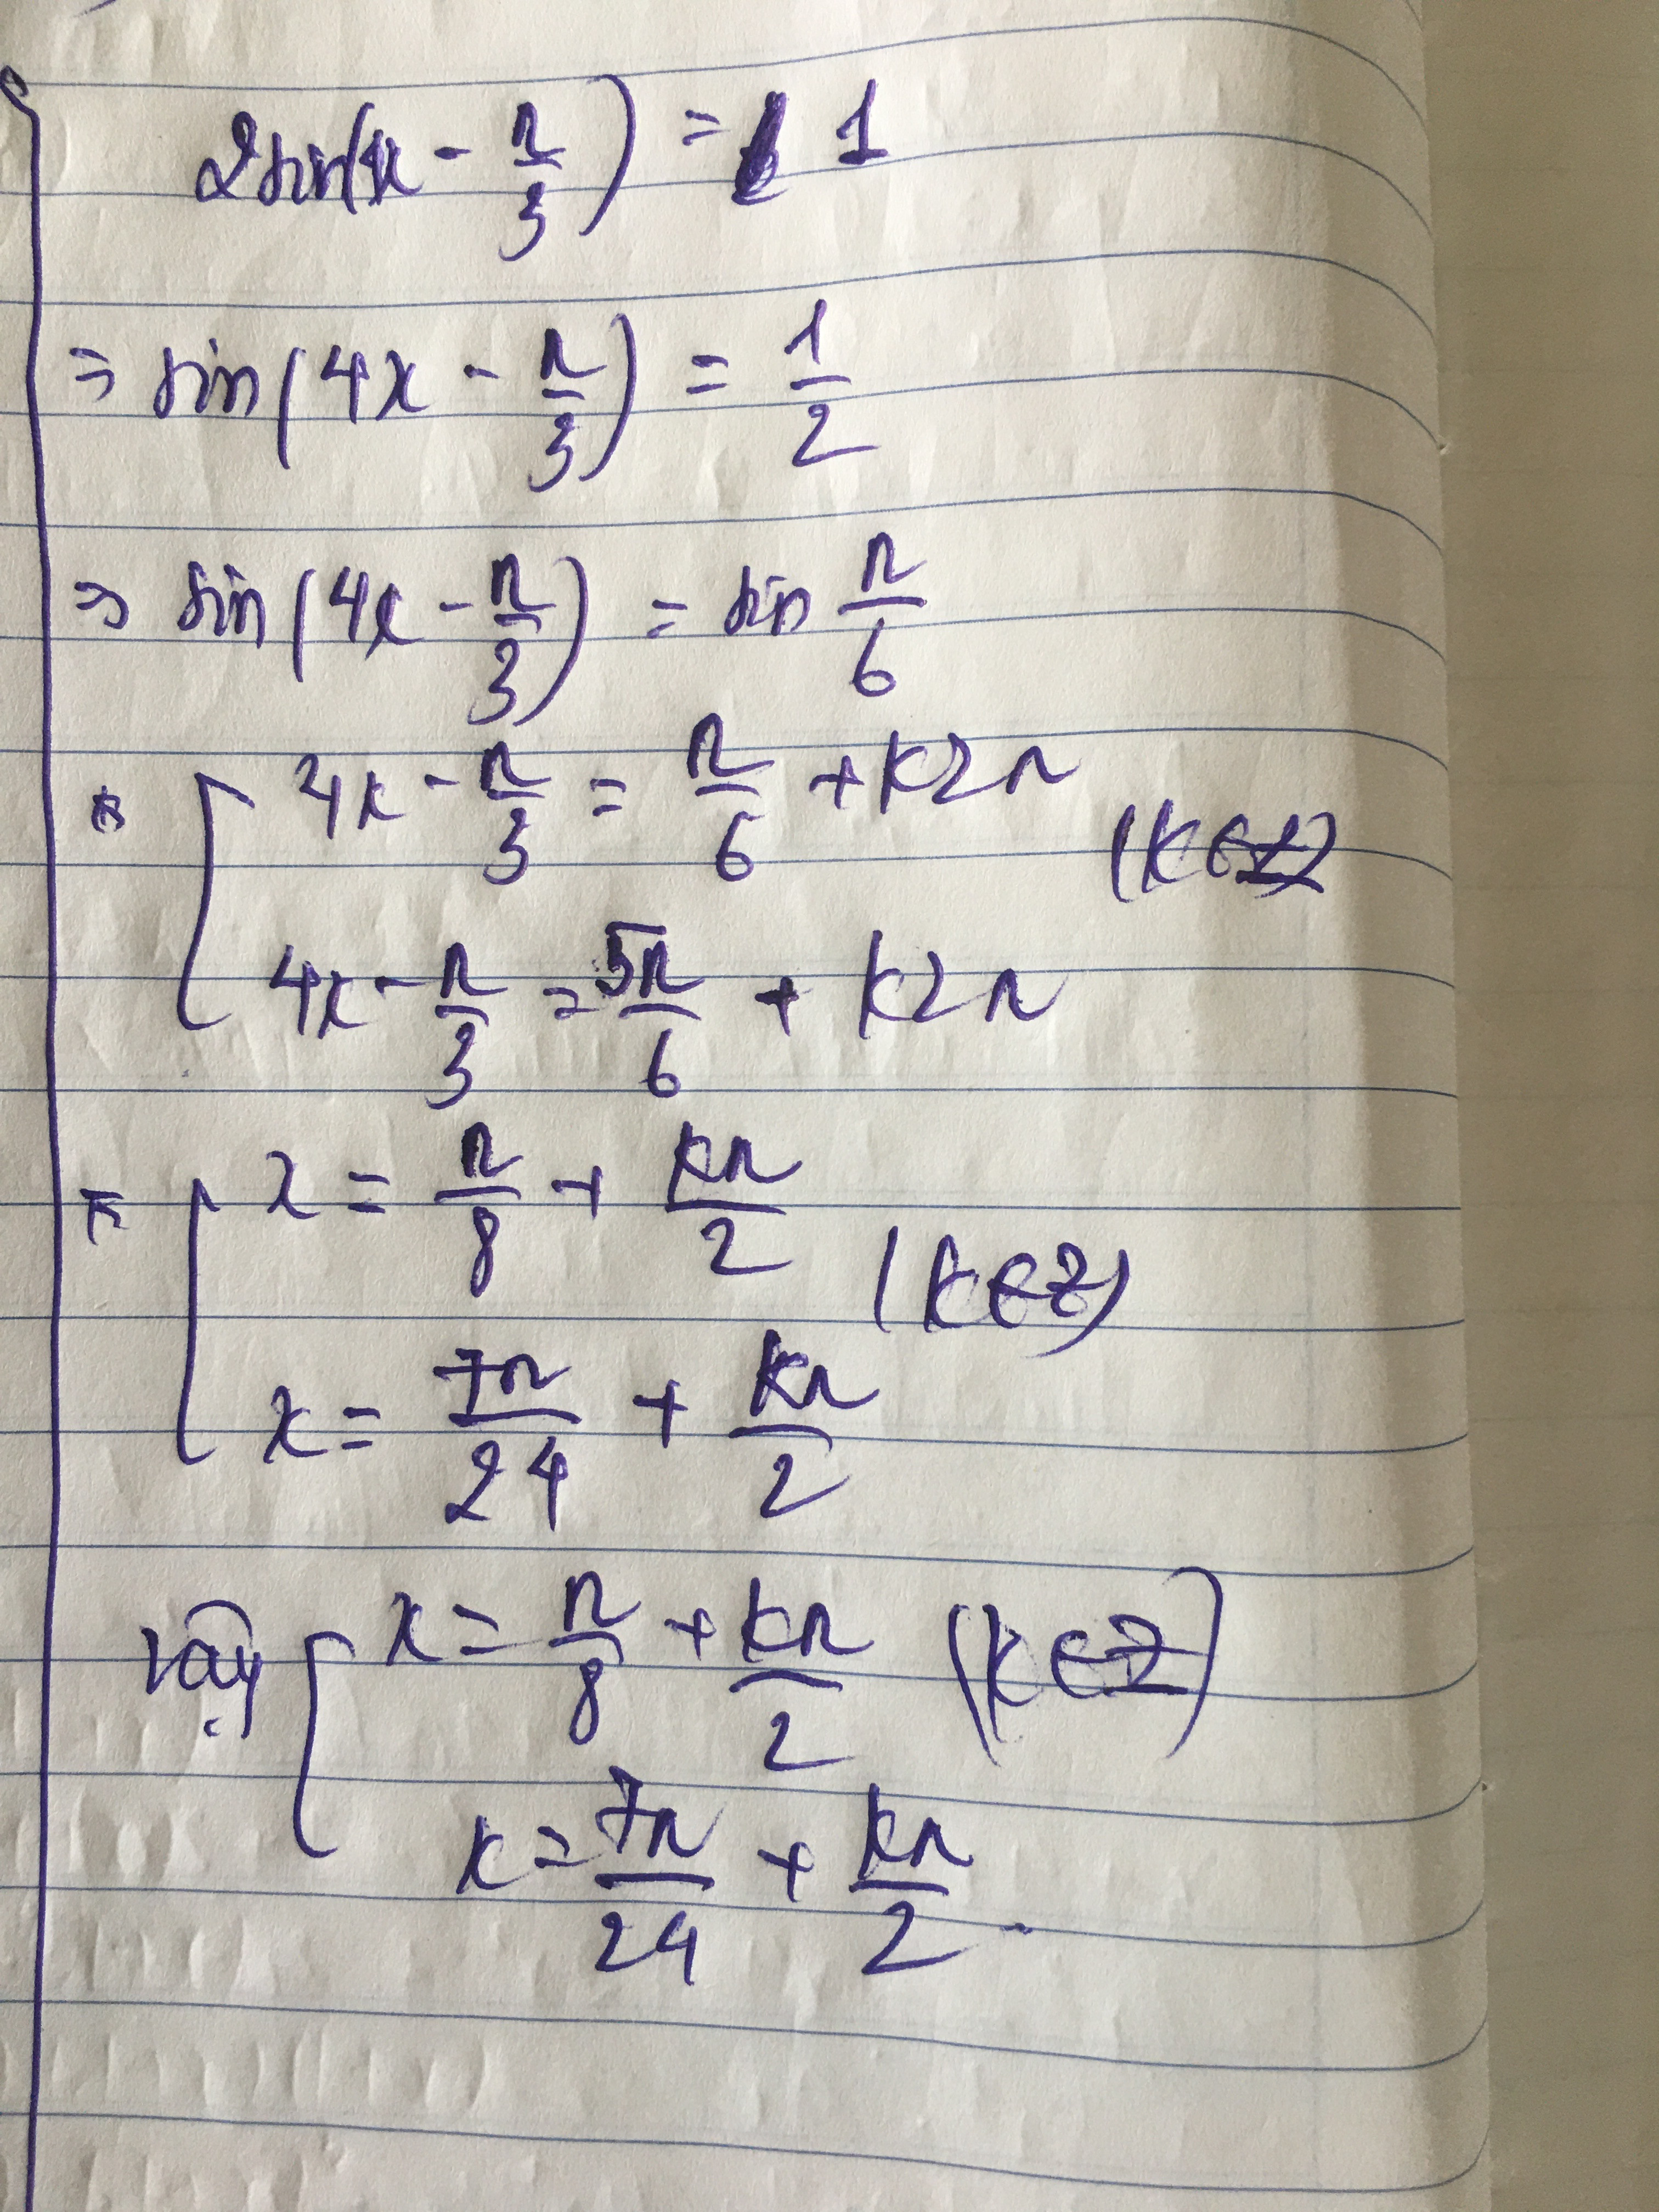 2sin(4x - π/3) = 1
=> sin(4x - π/3) = 1/2
=> sin(4x - π/3) = sin π/6
* [ 4x - π/3 = π/6 + k2π
(k∈Z)
4x - π/3 = 5π/6 + k2π
* [ x = π/8 + kπ/2
(k∈Z)
x = 7π/24 + kπ/2
Vậy [ x = π/8 + kπ/2 (k∈Z)
x = 7π/24 + kπ/2.